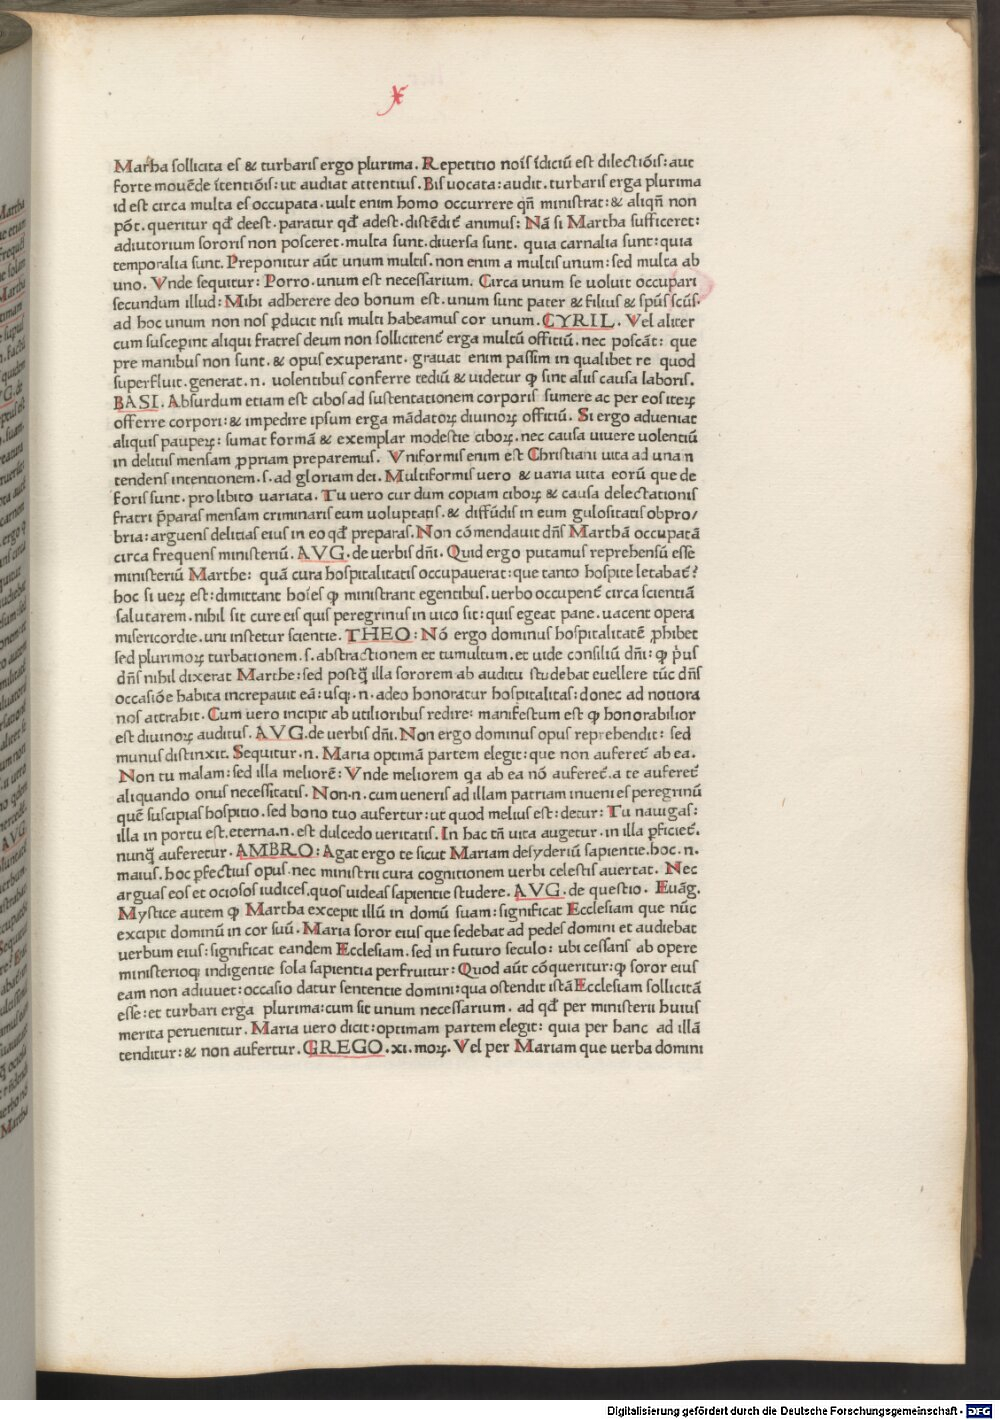 x
Martha sollicita es & turbaris ergo plurima. Repetitio nois̄ ı̄diciū est dilectiōis: aut
forte mouēde ı̄tentiōis: ut audiat attentius. Bis uocata: audit. turbaris erga plurima
id est circa multa es occupata. uult enim homo occurrere qn̄ ministrat: & aliqn̄ non
pōt. queritur qđ deest. paratur qđ adest. distēdit̄ animus: Nā si Martha sufficeret:
adiutorium sororis non posceret. multa sunt. diuersa sunt. quia carnalia sunt: quia
temporalia sunt. Preponitur aūt unum multis. non enim a multis unum: sed multa ab
uno. Vnde sequitur: Porro. unum est necessarium. Circa unum se uoluit occupari
secundum illud: Mihi adherere deo bonum est. unum sunt pater & filius & spūs scūs.
ad hoc unum non nos ꝑducit nisi multi habeamus cor unum. CYRIL. Vel aliter
cum susceperint aliqui fratres deum non sollicitent̄ erga multū offitiū. nec poscāt: que
pre manibus non sunt. & opus exuperant. grauat enim passim in qualibet re quod
superfluit. generat. n. uolentibus conferre tediū & uidetur ꝙ sint aliis causa laboris.
BASI. Absurdum etiam est cibos ad sustentationem corporis sumere ac per eos iteꝝ
offerre corpori: & impedire ipsum erga mādatoꝝ diuinoꝝ offitiū. Si ergo adueniat
aliquis paupeꝝ: sumat formā & exemplar modestie ciboꝝ. nec causa uiuere uolentiū
in delitiis mensam ꝓpriam preparemus. Vniformis enim est Christiani uita ad una n
tendens intentionem. s. ad gloriam dei. Multiformis uero & uaria uita eorū que de
foris sunt. pro libito uariata. Tu uero cur dum copiam ciboꝝ & causa delectationis
fratri p̄paras mensam criminaris eum uoluptatis. & diffūdis in eum gulositatis obpro/
bria: arguens delitias eius in eo qđ preparas. Non cōmendauit dn̄s Marthā occupatā
circa frequens ministeriū. AVG. de uerbis dn̄i. Quid ergo putamus reprehensū esse
ministeriū Marthe: quā cura hospitalitatis occupauerat: que tanto hospite letabat̄?
hoc si ueꝝ est: dimittant hoīes ꝙ ministrant egentibus. uerbo occupent̄ circa scientiā
salutarem. nihil sit cure eis quis peregrinus in uico sit: quis egeat pane. uacent opera
misericordie. uni instetur scientie. THEO: Nō ergo dominus hospitalitatē ꝓhibet
sed plurimoꝝ turbationem. s. abstractionem et tumultum. et uide consiliū dn̄i: ꝙ p̄us
dn̄s nihil dixerat Marthe: sed postꝗ illa sororem ab auditu studebat euellere tūc dn̄s
occasiōe habita increpauit eā: usꝗ. n. adeo honoratur hospitalitas: donec ad notiora
nos attrahit. Cum uero incipit ab utilioribus redire: manifestum est ꝙ honorabilior
est diuinoꝝ auditus. AVG. de uerbis dn̄i. Non ergo dominus opus reprehendit: sed
munus distinxit. Sequitur. n. Maria optimā partem elegit: que non auferet̄ ab ea.
Non tu malam: sed illa meliorē: Vnde meliorem qa ab ea nō auferet̄. a te auferet̄
aliquando onus necessitatis. Non. n. cum ueneris ad illam patriam inueni es peregrinū
quē suscipias hospitio. sed bono tuo aufertur: ut quod melius est: detur: Tu nauigas:
illa in portu est. eterna. n. est dulcedo ueritatis. In hac tn̄ uita augetur. in illa ꝑficiet̄.
nunꝗ auferetur. AMBRO: Agat ergo te sicut Mariam desyderiū sapientie. hoc. n.
maius. hoc ꝑfectius opus. nec ministrii cura cognitionem uerbi celestis auertat. Nec
arguas eos et ociosos iudices. quos uideas sapientie studere. AVG. de questio. Euāg.
Mystice autem ꝙ Martha excepit illū in domū suam: significat Ecclesiam que nūc
excipit dominū in cor suū. Maria soror eius que sedebat ad pedes domini et audiebat
uerbum eius: significat eandem Ecclesiam. sed in futuro seculo: ubi cessans ab opere
ministerioꝗ indigentie sola sapientia perfruitur: Quod aūt cōqueritur: ꝙ soror eius
eam non adiuuet: occasio datur sententie domini: qua ostendit istā Ecclesiam sollicitā
esse: et turbari erga plurima: cum sit unum necessarium. ad qđ per ministerii huius
merita peruenitur. Maria uero dicit: optimam partem elegit: quia per hanc ad illā
tenditur: & non aufertur. GREGO. xi. moꝝ. Vel per Mariam que uerba domini
Digitalisierung gefördert durch die Deutsche Forschungsgemeinschaft - DFG